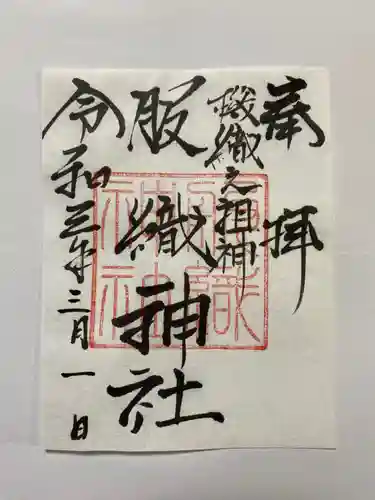 奉拝
機織之祖神
服織神社
令和三年三月一日